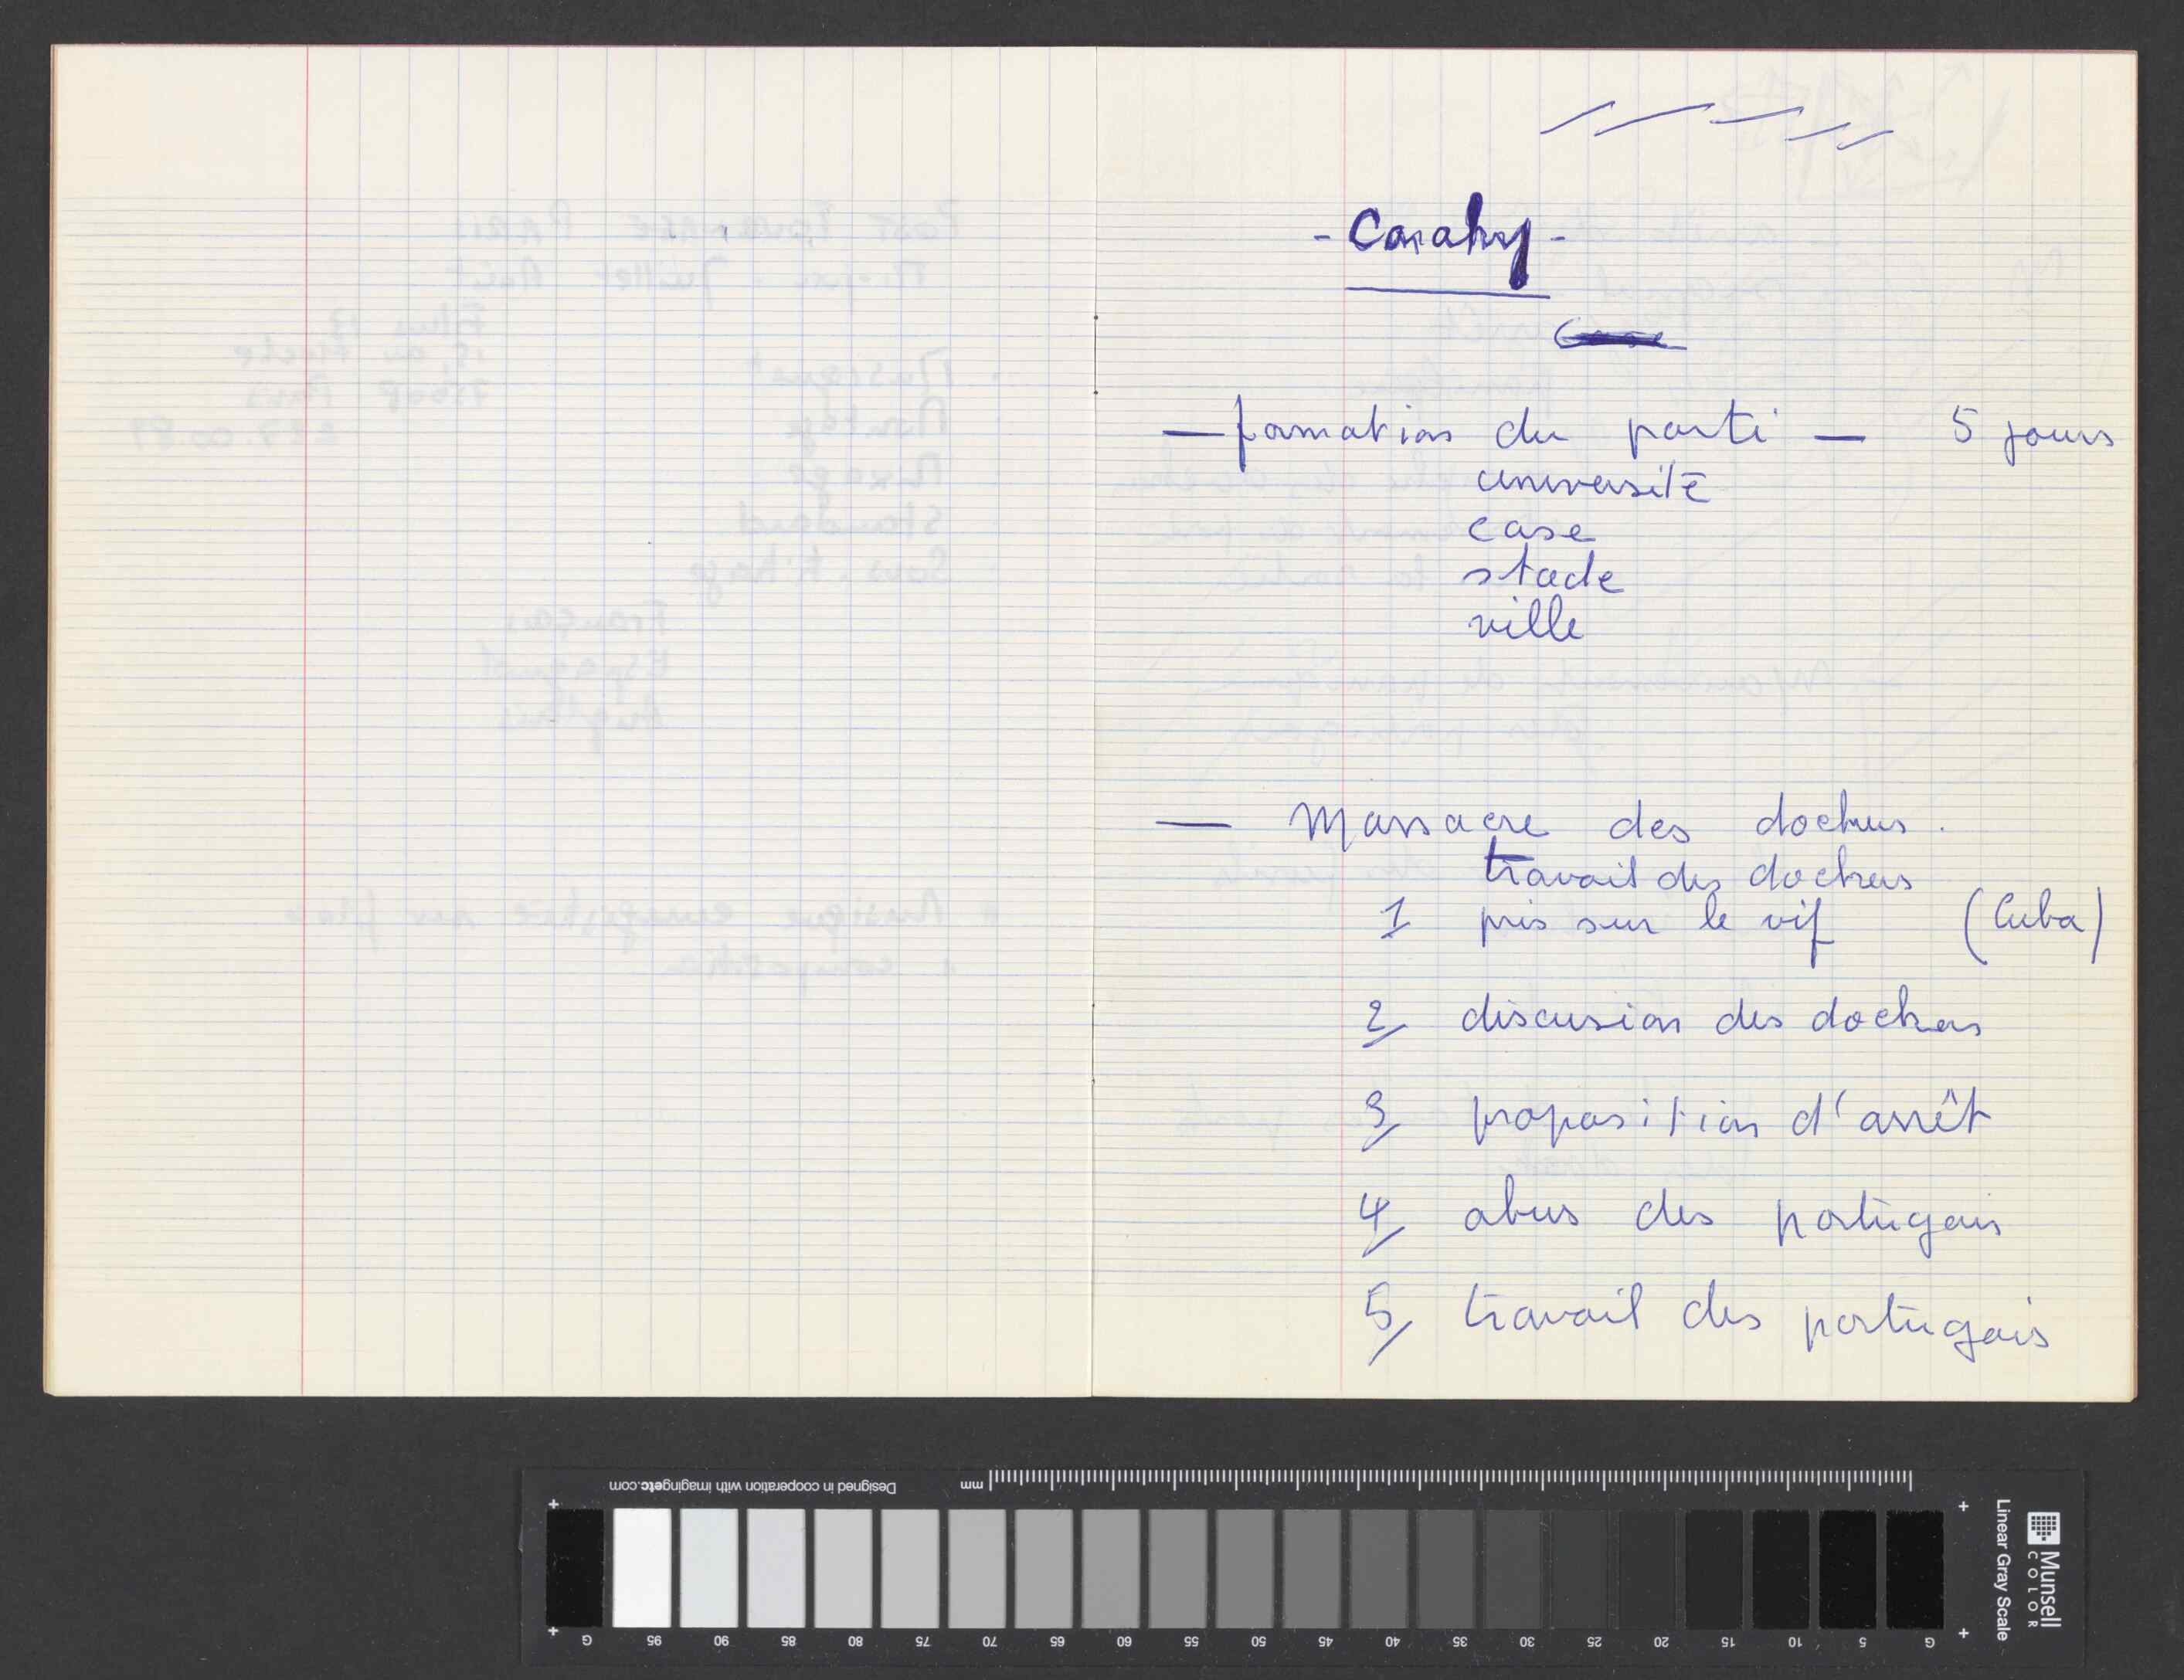 - Conakry -
— formation du parti — 5 jours
université
case
stade
ville
— Massacre des dockers.
travail des dockers
1 pris sur le vif (Cuba)
2/ discusion des dockers
3/ proposition d'arrêt
4/ abus des portugais
5/ travail des portugais
Designed in cooperation with imagingetc.com
mm
G 95 90 85 80 75 70 65 60 55 50 45 40 35 30 25 20 15 10 5 G
Linear Gray Scale
Munsell
COLOR